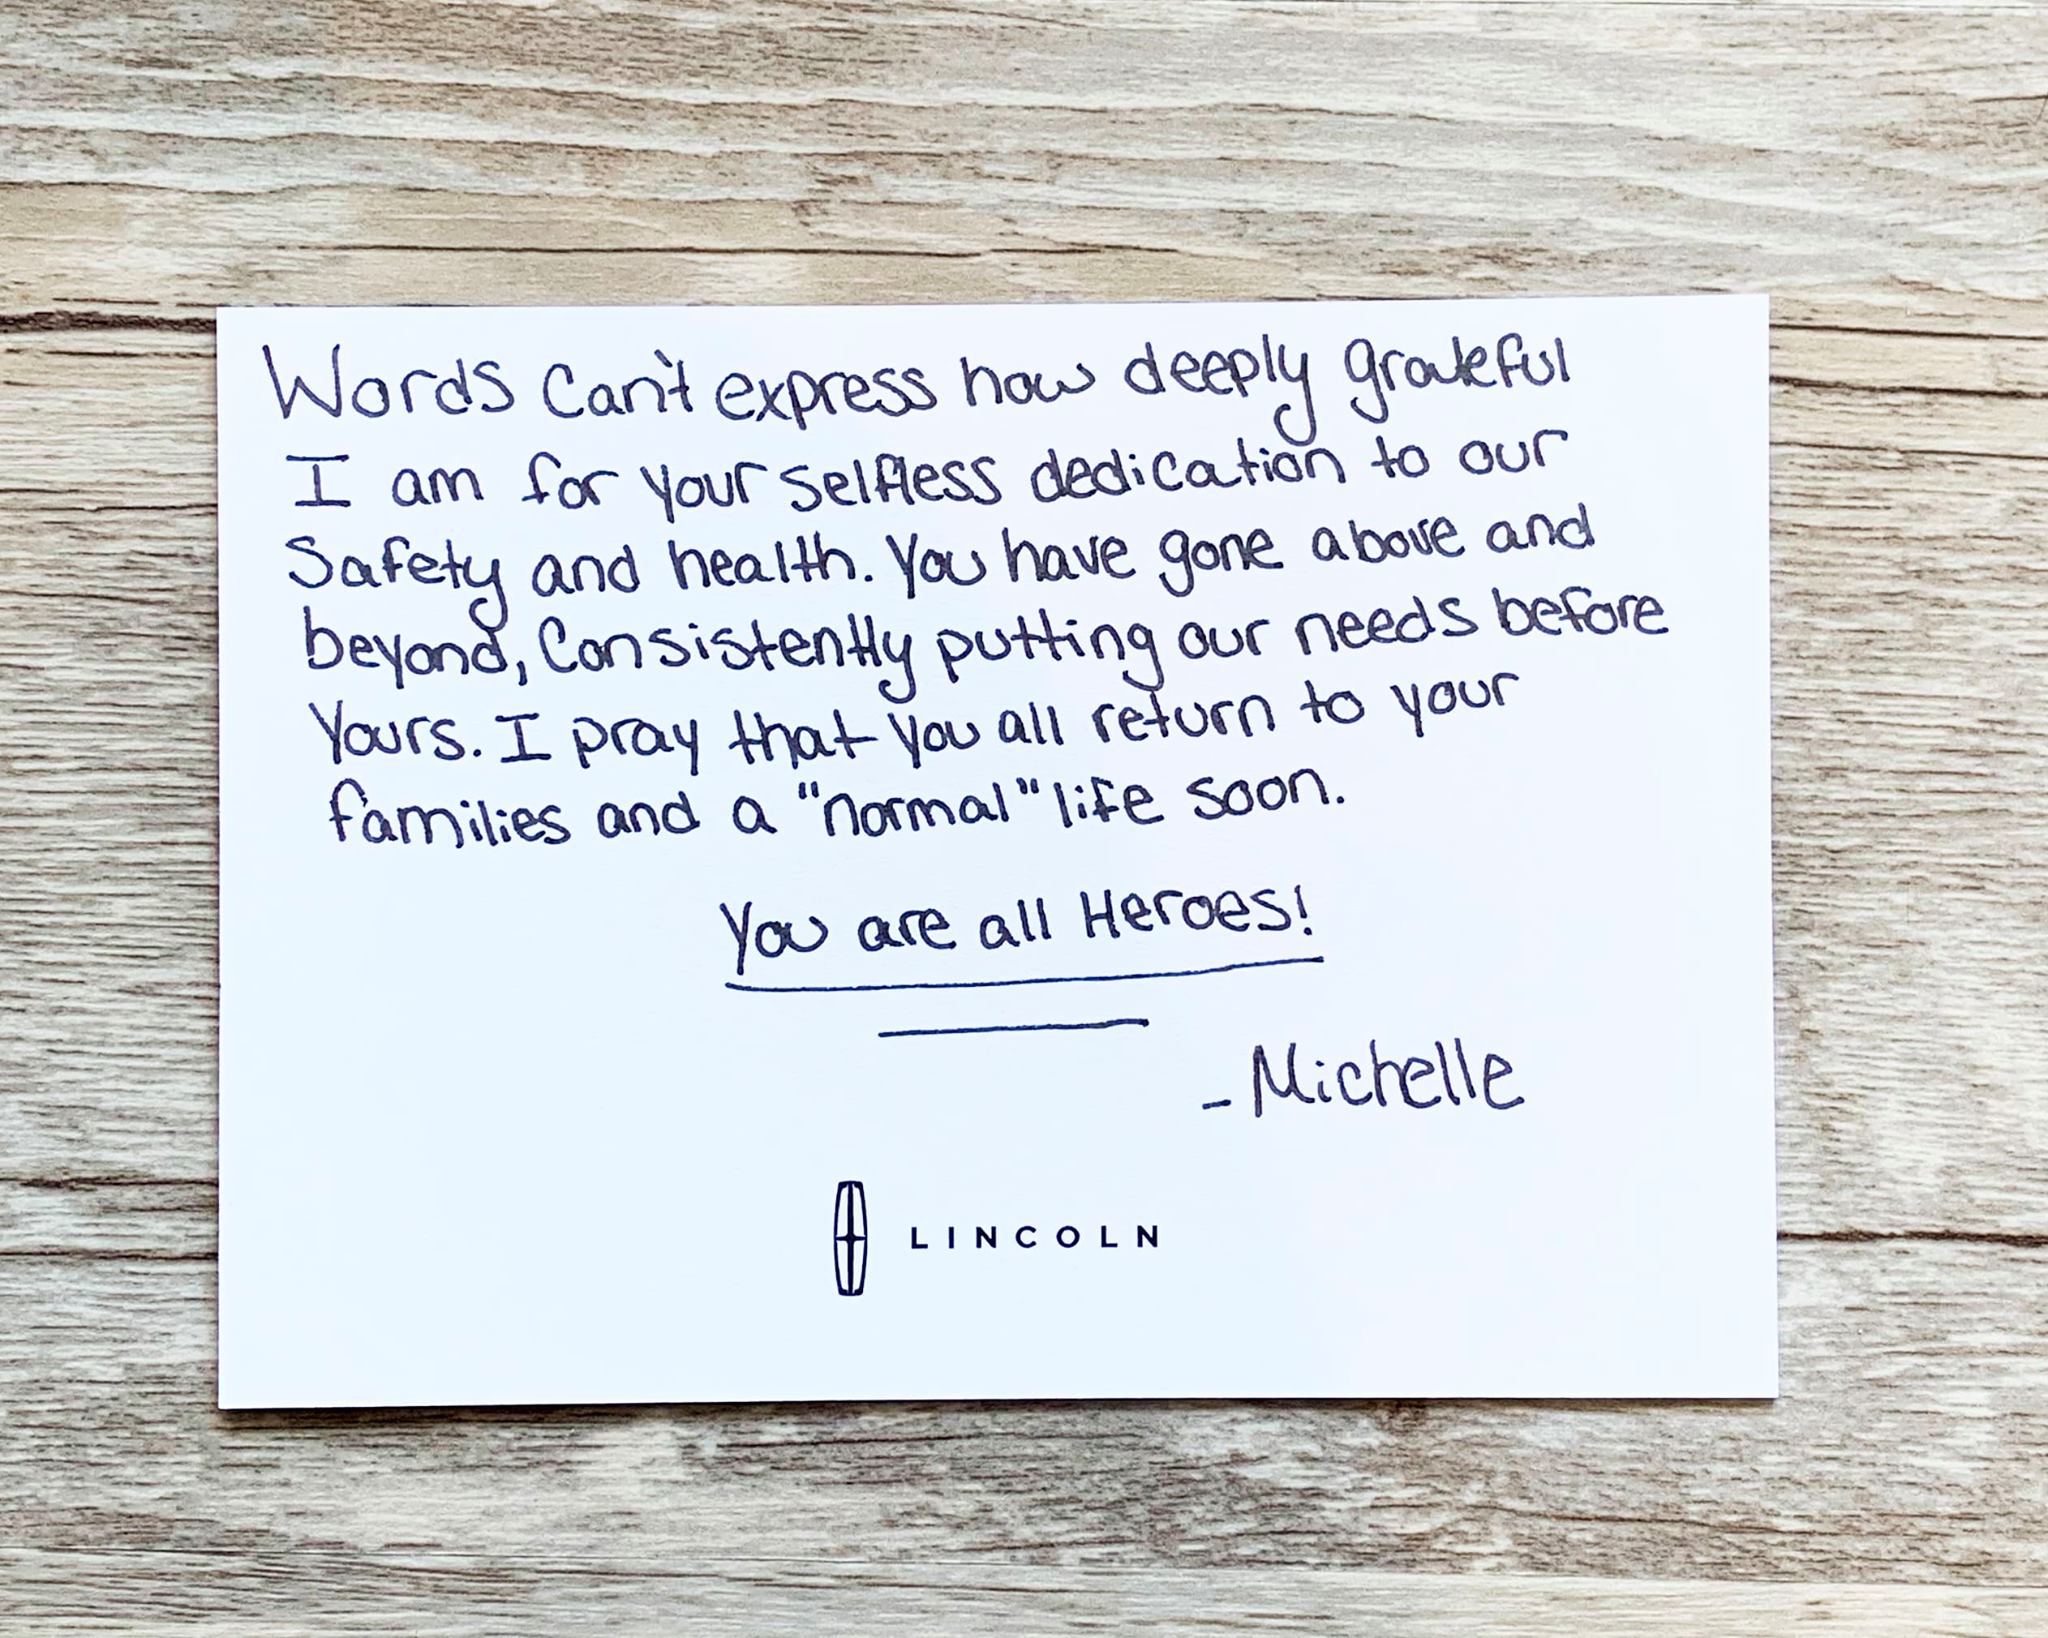 Words can't express how deeply grateful
I am for your selfless dedication to our
safety and health. You have gone above and
beyond, consistently putting our needs before
yours. I pray that you all return to your
families and a "normal" life soon.
You are all Heroes!
- Michelle
LINCOLN